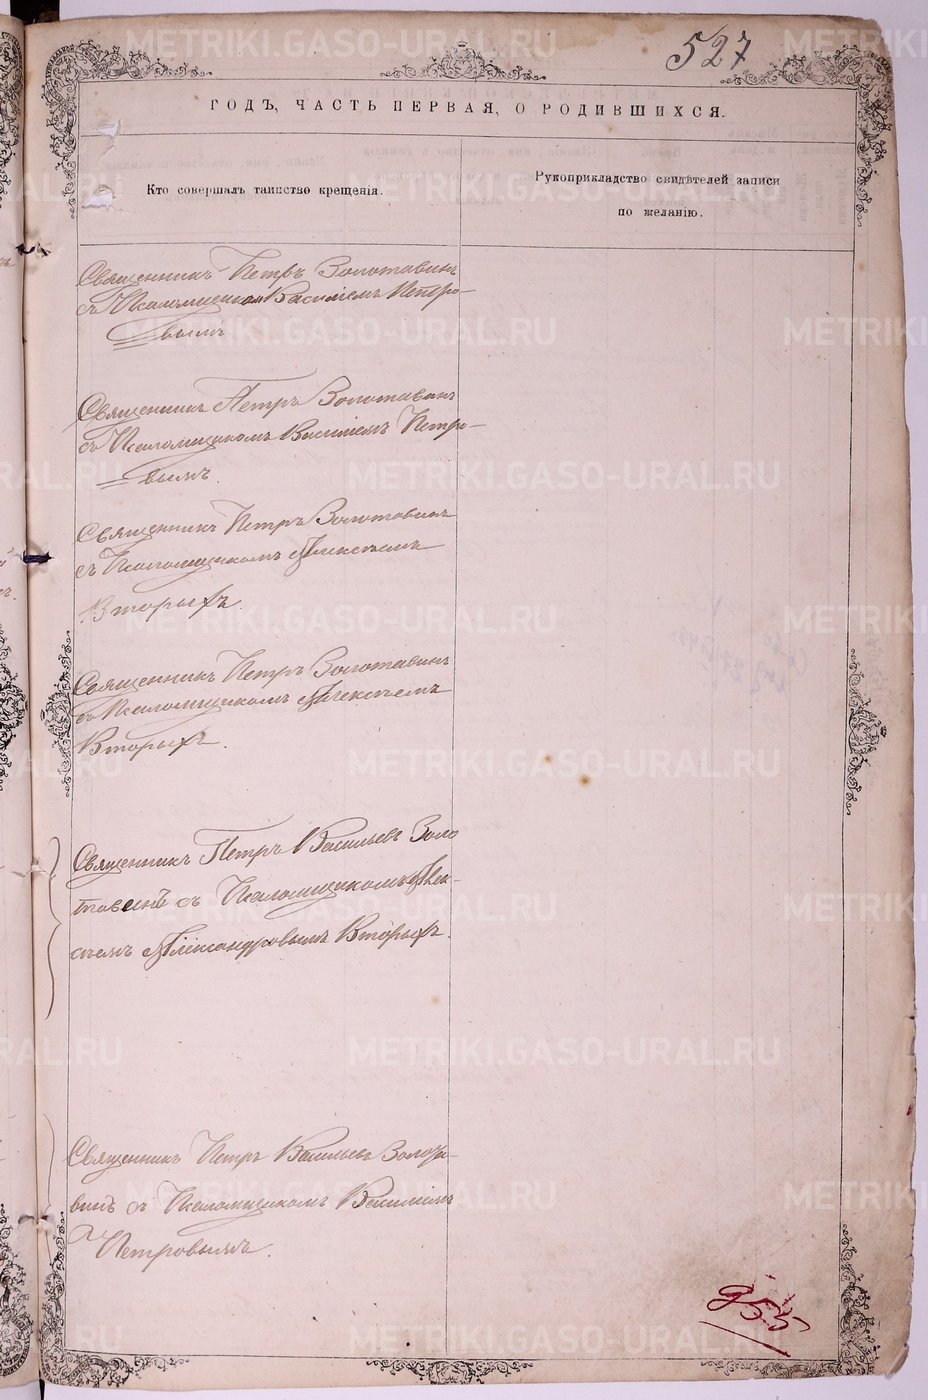 527
ГОДЪ, ЧАСТЬ ПЕРВАЯ, О РОДИВШИХСЯ.
Кто совершалъ таинство крещенія.
Рукоприкладство свидѣтелей записи
по желанію.
Священникъ Петръ Золотавинъ
съ Псаломщикомъ Василіемъ Петро-
вымъ
Священникъ Петръ Золотавинъ
съ Псаломщикомъ Василіемъ Петро-
вымъ.
Священникъ Петръ Золотавинъ
съ Псаломщикомъ Алексѣемъ
Вторыхъ.
Священникъ Петръ Золотавинъ
съ Псаломщикомъ Алексѣемъ
Вторыхъ.
Священникъ Петръ Васильевъ Золо
тавинъ съ Псаломщикомъ Алек-
сѣемъ Александровымъ Вторыхъ.
Священникъ Петръ Васильевъ Золота-
винъ съ Псаломщикомъ Василіемъ
Петровымъ.
955
METRIKI.GASO-URAL.RU